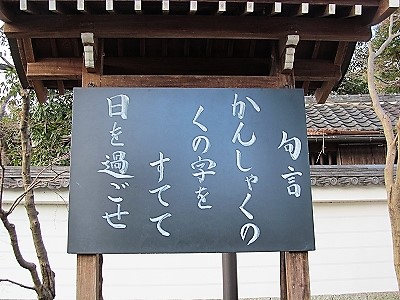 句言
かんしゃくの
くの字を
すてて
日を過ごせ